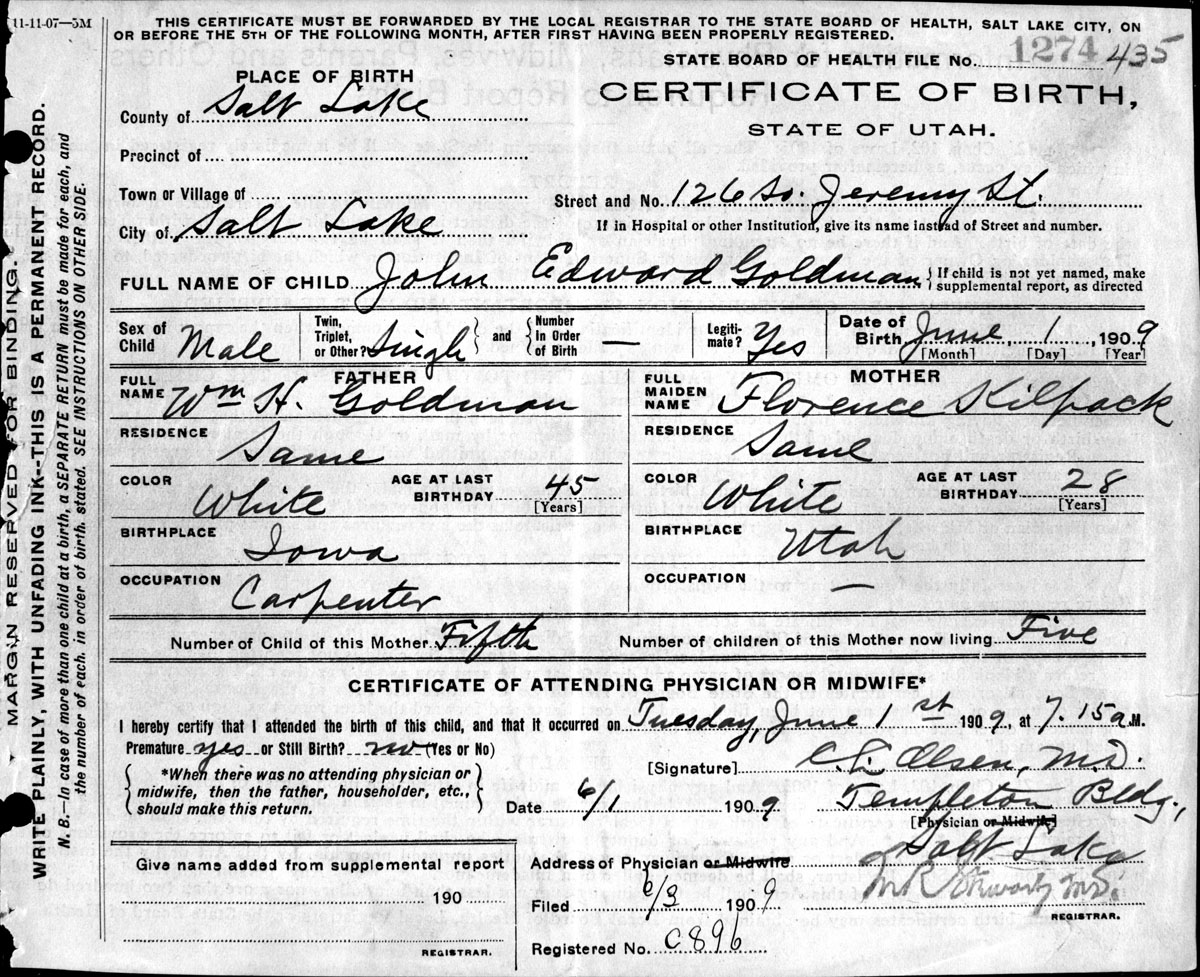 11-11-07—5M
THIS CERTIFICATE MUST BE FORWARDED BY THE LOCAL REGISTRAR TO THE STATE BOARD OF HEALTH, SALT LAKE CITY, ON
OR BEFORE THE 5TH OF THE FOLLOWING MONTH, AFTER FIRST HAVING BEEN PROPERLY REGISTERED.
STATE BOARD OF HEALTH FILE No. 1274 435
CERTIFICATE OF BIRTH,
STATE OF UTAH.
PLACE OF BIRTH
County of Salt Lake
Precinct of
Town or Village of
City of Salt Lake
Street and No. 126 So. Jeremy St.
If in Hospital or other Institution, give its name instead of Street and number.
FULL NAME OF CHILD John Edward Goldman { If child is not yet named, make
supplemental report, as directed
Sex of Child Male
Twin, Triplet, or Other? Single and Number In Order of Birth —
Legiti-mate? Yes
Date of Birth June 1 1909
[Month] [Day] [Year]
FATHER
FULL NAME Wm H. Goldman
RESIDENCE Same
COLOR White AGE AT LAST BIRTHDAY 45 [Years]
BIRTHPLACE Iowa
OCCUPATION Carpenter
MOTHER
FULL MAIDEN NAME Florence Kilpack
RESIDENCE Same
COLOR White AGE AT LAST BIRTHDAY 28 [Years]
BIRTHPLACE Utah
OCCUPATION —
Number of Child of this Mother Fifth Number of children of this Mother now living Five
CERTIFICATE OF ATTENDING PHYSICIAN OR MIDWIFE*
I hereby certify that I attended the birth of this child, and that it occurred on Tuesday, June 1st 1909, at 7.15 a M.
Premature yes or Still Birth? no (Yes or No)
*When there was no attending physician or
midwife, then the father, householder, etc.,
should make this return.
[Signature] C. L. Olsen, M.D.
Date 6/1 1909 Templeton Bldg.,
[Physician or Midwife]
Salt Lake
Address of Physician or Midwife
Give name added from supplemental report
190
REGISTRAR.
Filed 6/3 1909
M.D.
REGISTRAR.
Registered No. C896
MARGIN RESERVED FOR BINDING
WRITE PLAINLY, WITH UNFADING INK--THIS IS A PERMANENT RECORD.
N. B.—In case of more than one child at a birth, a SEPARATE RETURN must be made for each, and
the number of each. in order of birth. stated. SEE INSTRUCTIONS ON OTHER SIDE.